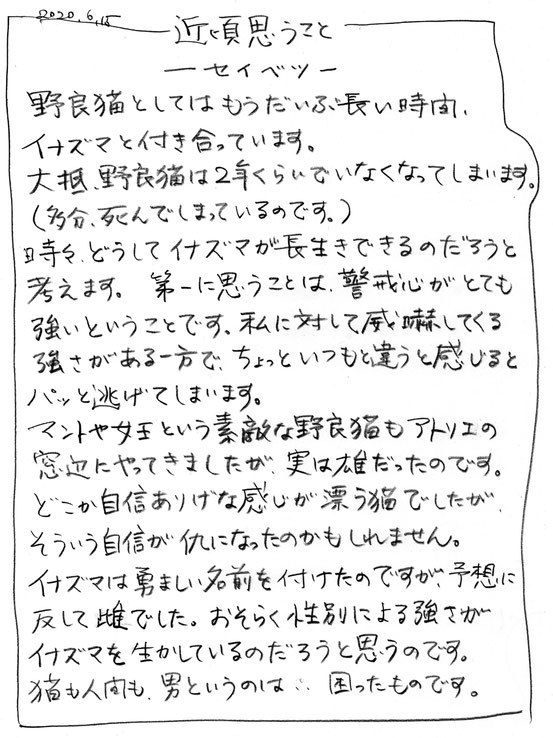 2020.6.15
近頃思うこと
ーセイベツー
野良猫としてはもうだいぶ長い時間、
イナズマと付き合っています。
大抵、野良猫は2年くらいでいなくなってしまいます。
(多分、死んでしまっているのです。)
時々、どうしてイナズマが長生きできるのだろうと
考えます。 第一に思うことは、警戒心がとても
強いということです。私に対して威嚇してくる
強さがある一方で、ちょっといつもと違うと感じると
パッと逃げてしまいます。
マントや女王という素敵な野良猫もアトリエの
窓辺にやってきましたが、実は雄だったのです。
どこか自信ありげな感じが漂う猫でしたが、
そういう自信が仇になったのかもしれません。
イナズマは勇ましい名前を付けたのですが、予想に
反して雌でした。おそらく性別による強さが
イナズマを生かしているのだろうと思うのです。
猫も人間も、男というのは∴ 困ったものです。